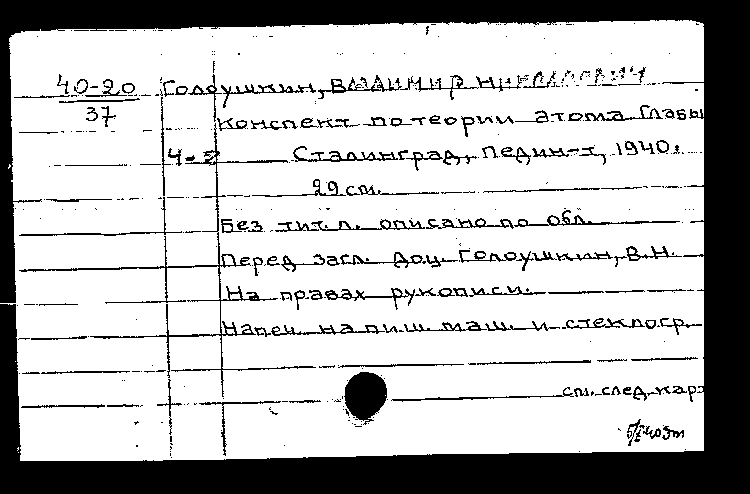 40-20 Голоушкин, Владимир Николаевич
37
Конспект по теории атома. Главы
4-
Сталинград, Педин-т, 1940.
29 см.
Без тит. л. описано по обл.
Перед загл. Доц. Голоушкин, В.Н.
На правах рукописи.
Напеч. на пиш. маш. и стеклогр.
см. след. кар